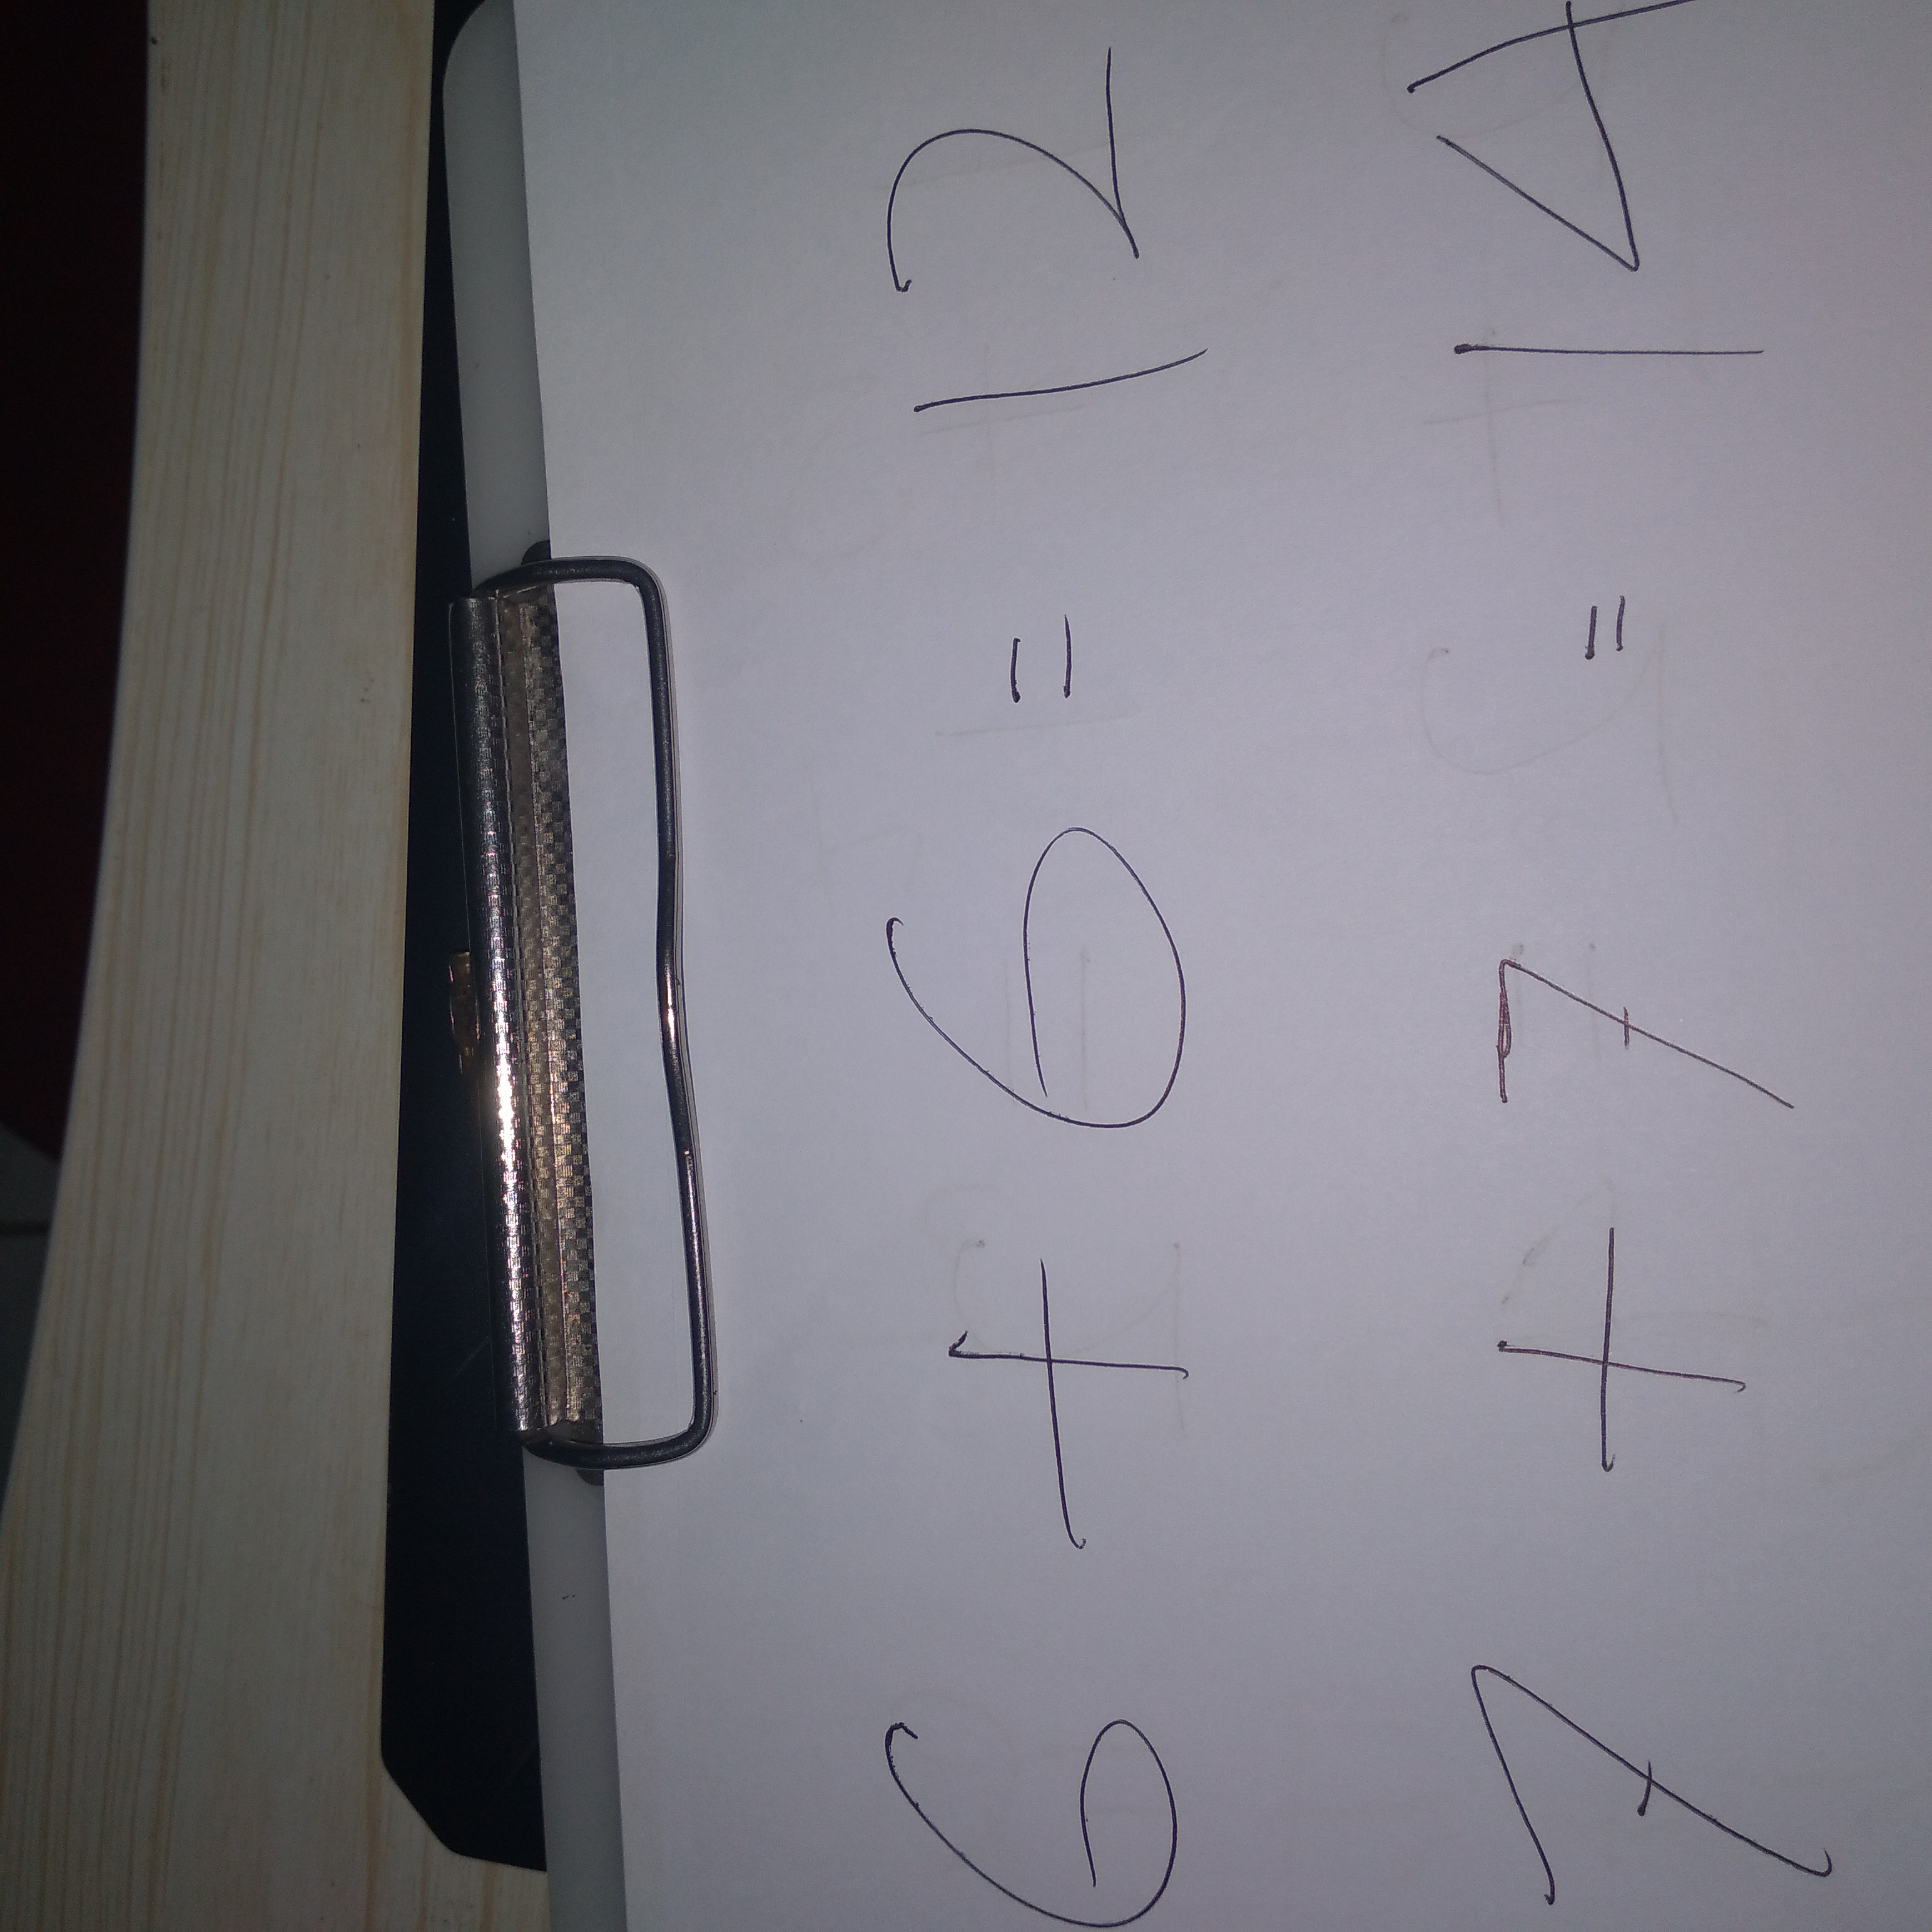 6 + 6 = 12
7 + 7 = 14